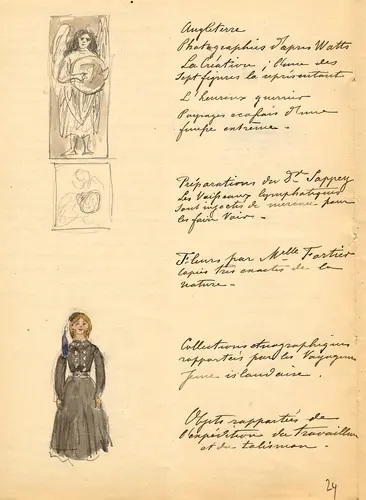 Angleterre
Photographies d'après Watts
La Création ; l'une des
Sept figures la représentant
L'heureux guerrier
Paysages écossais d'une
furie extrême.
Préparations du Dr Sappey
Les Vaisseaux lymphatiques
sont injectés de mercure pour
les faire voir.
Fleurs par Melle Fortier
copies très exactes de la
nature.
Collections etnographiques
rapportées par les Voyageurs
Jeune islandaise.
Objets rapportés de
l'expédition du travailleur
et du talisman.
24